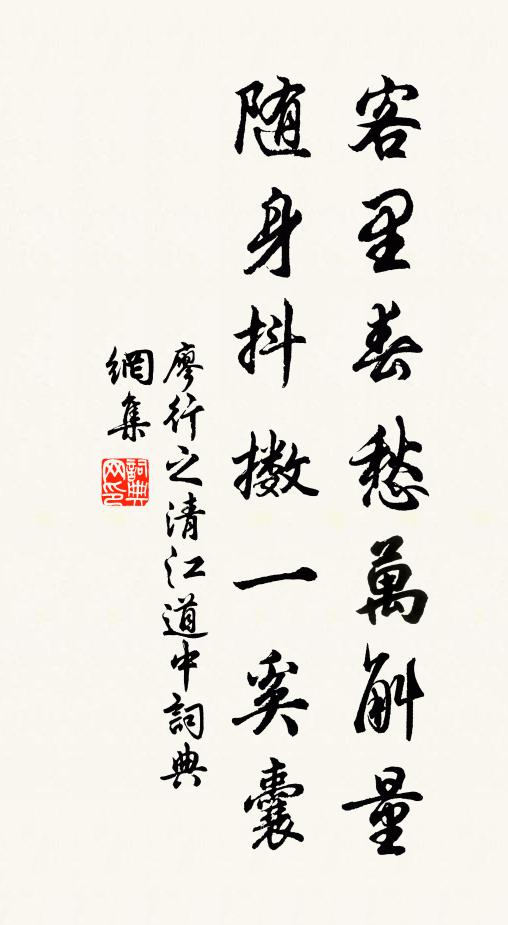 客里春愁萬斛量
随身抖擻一奚囊
廖行之清江道中詞典
網集
詞典网印